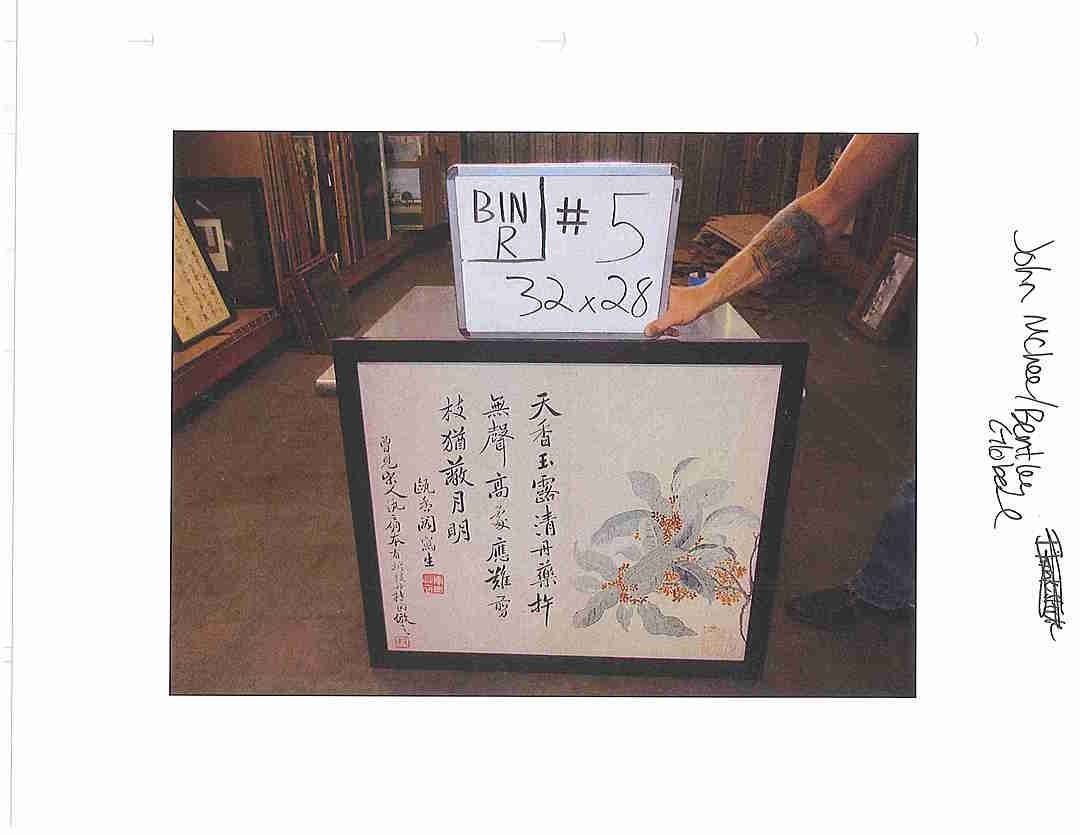 BIN # 5
R
32 x 28
天香玉露清丹藥杵
無聲高處應難剪
枝猶蔽月明
甌香閣寫生
曾見宋人
John McPhee/Bentley
Global